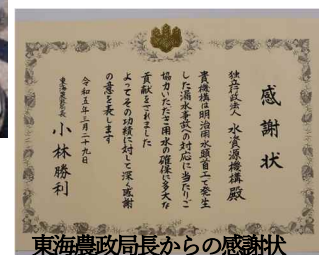 感謝状
独立行政法人 水資源機構 殿
貴機構は明治用水頭首工で発生
した漏水事故への対応に当たりご
協力いただき用水の確保に多大な
貢献をされました
よってその功績に対して深く感謝
の意を表します
令和五年三月二十九日
東海農政局長 小林勝利
東海農政局長からの感謝状